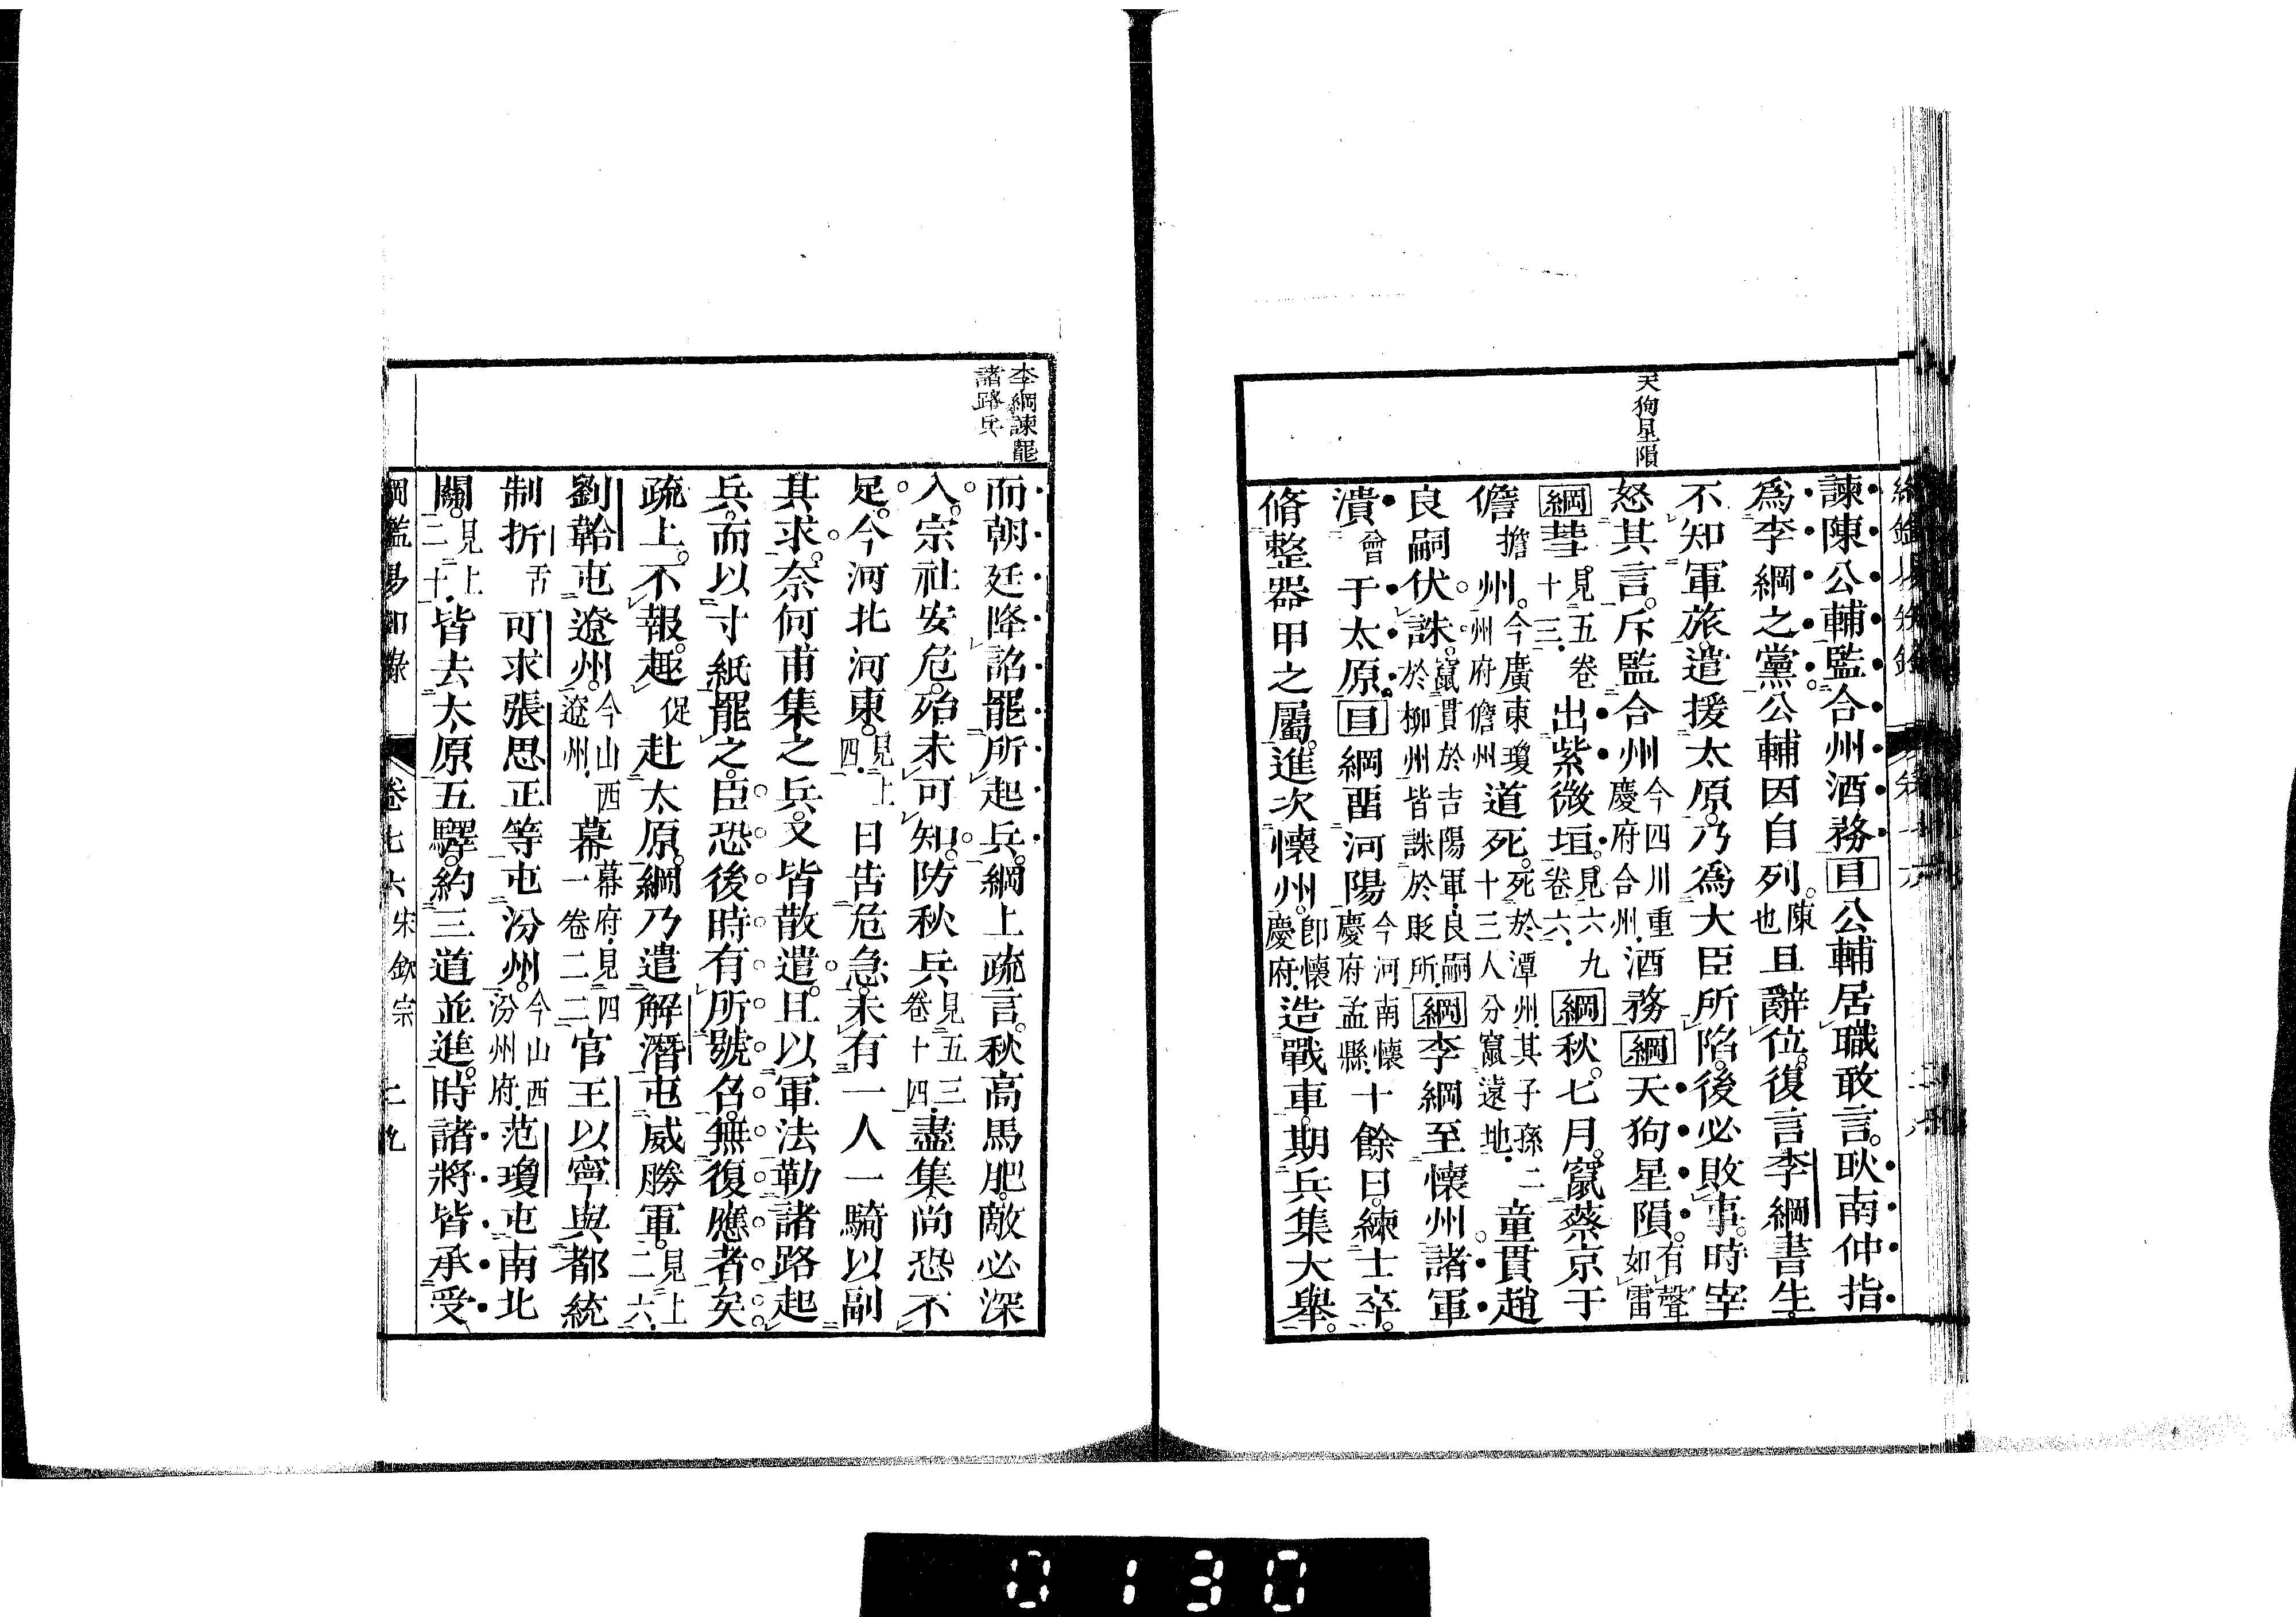 天狗星隕
諫陳公輔監合州酒務目公輔居職敢言。耿南仲指
爲李綱之黨。公輔因自列。陳也且辭位。復言李綱書生。
不知軍旅。遣援太原。乃爲大臣所陷。後必敗事。時宰
怒其言。斥監合州今四川重慶府合州酒務綱天狗星隕。有聲如雷
綱彗見五卷十三出紫微垣。見六九卷六綱秋。七月。竄蔡京于
儋擔州。今廣東瓊州府儋州道死。死於潭州其子孫二十三人分竄遠地童貫趙
良嗣伏誅。竄貫於吉陽軍良嗣於柳州皆誅於貶所綱李綱至懷州諸軍
潰曾于太原。目綱畱河陽今河南懷慶府孟縣十餘日。練士卒。
脩整器甲之屬。進次懷州。卽懷慶府造戰車。期兵集大舉。
李綱諫罷
諸路兵
而朝廷降詔罷所起兵。綱上疏言。秋高馬肥。敵必深
入。宗社安危。殆未可知。防秋兵見五三卷十四盡集。尚恐不
足。今河北河東。見上四日告危急。未有一人一騎以副
其求。奈何甫集之兵。又皆散遣。且以軍法勒諸路起
兵。而以寸紙罷之。臣恐後時有所號召。無復應者矣
疏上。不報。趣促赴太原。綱乃遣解潛屯威勝軍。見上二六
劉韐屯遼州。今山西遼州幕幕府見四一卷二二官王以寧與都統
制折舌可求張思正等屯汾州。今山西汾州府范瓊屯南北
關。見上二十皆去太原五驛。約三道並進。時諸將皆承受
綱鑑易知錄 卷七六 宋欽宗 二九